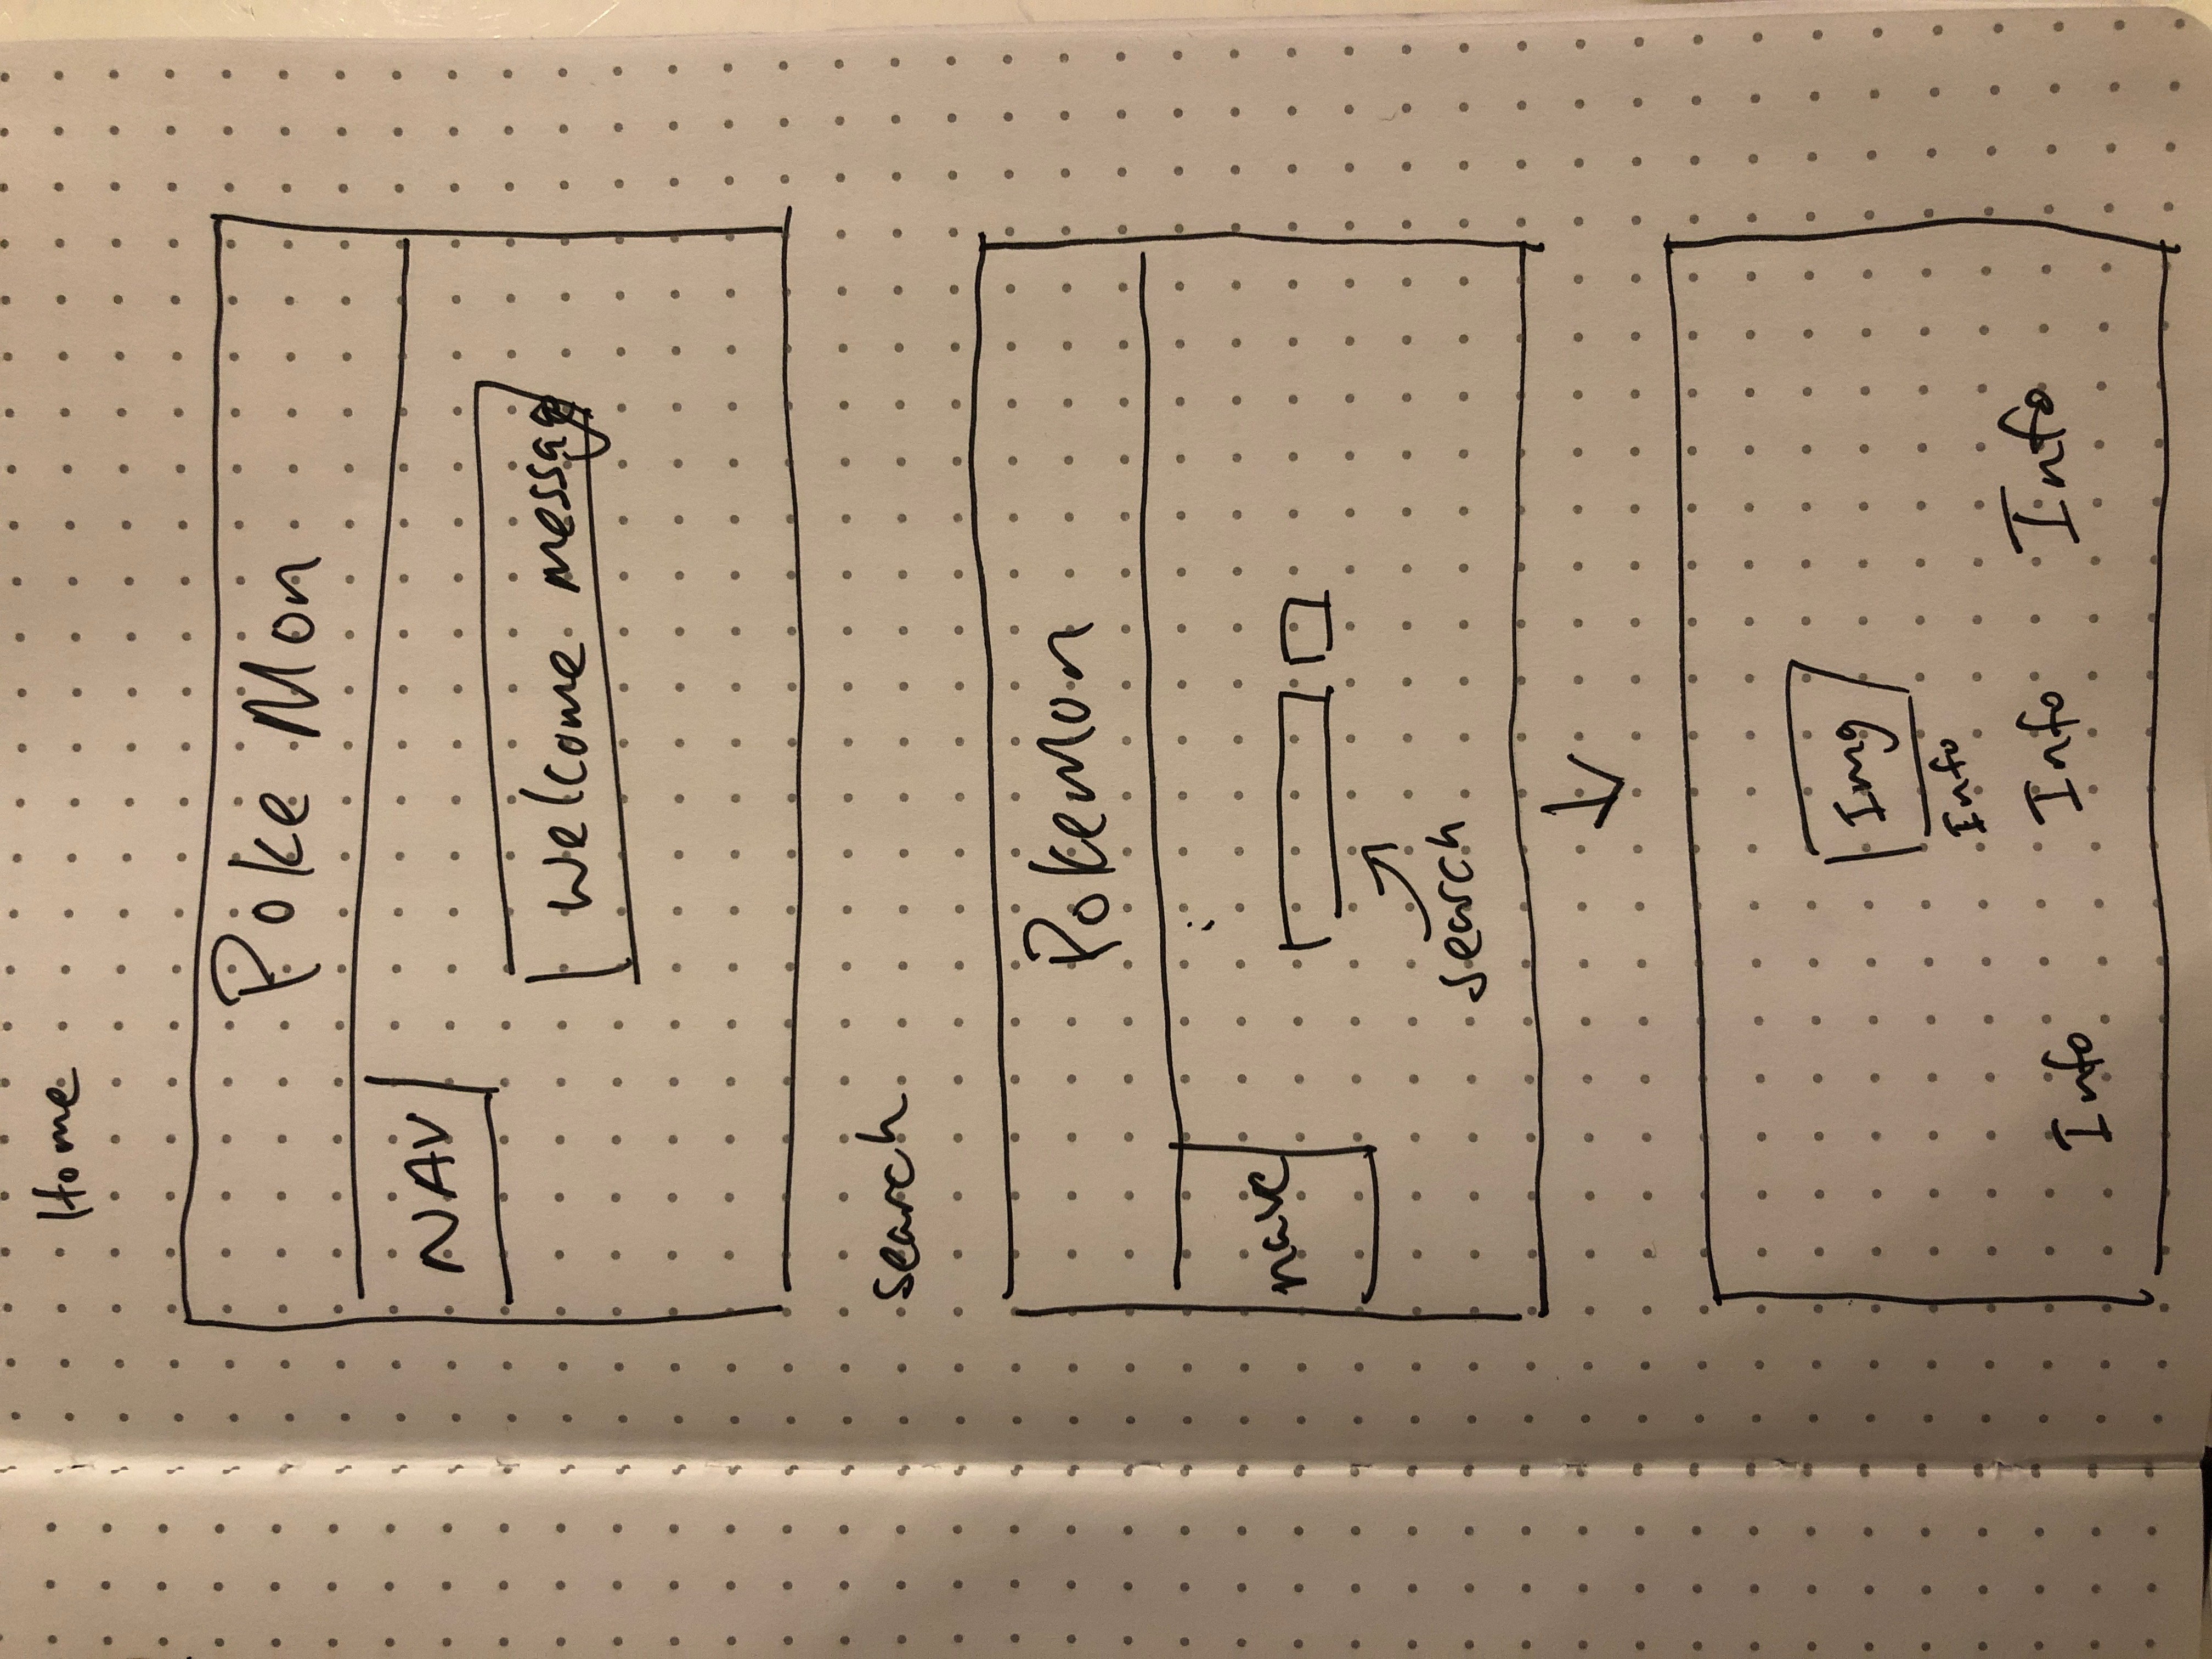 Home
Poke Mon
NAV
Welcome message
search
Pokemon
nave
search
Img
Info
Info Info Info